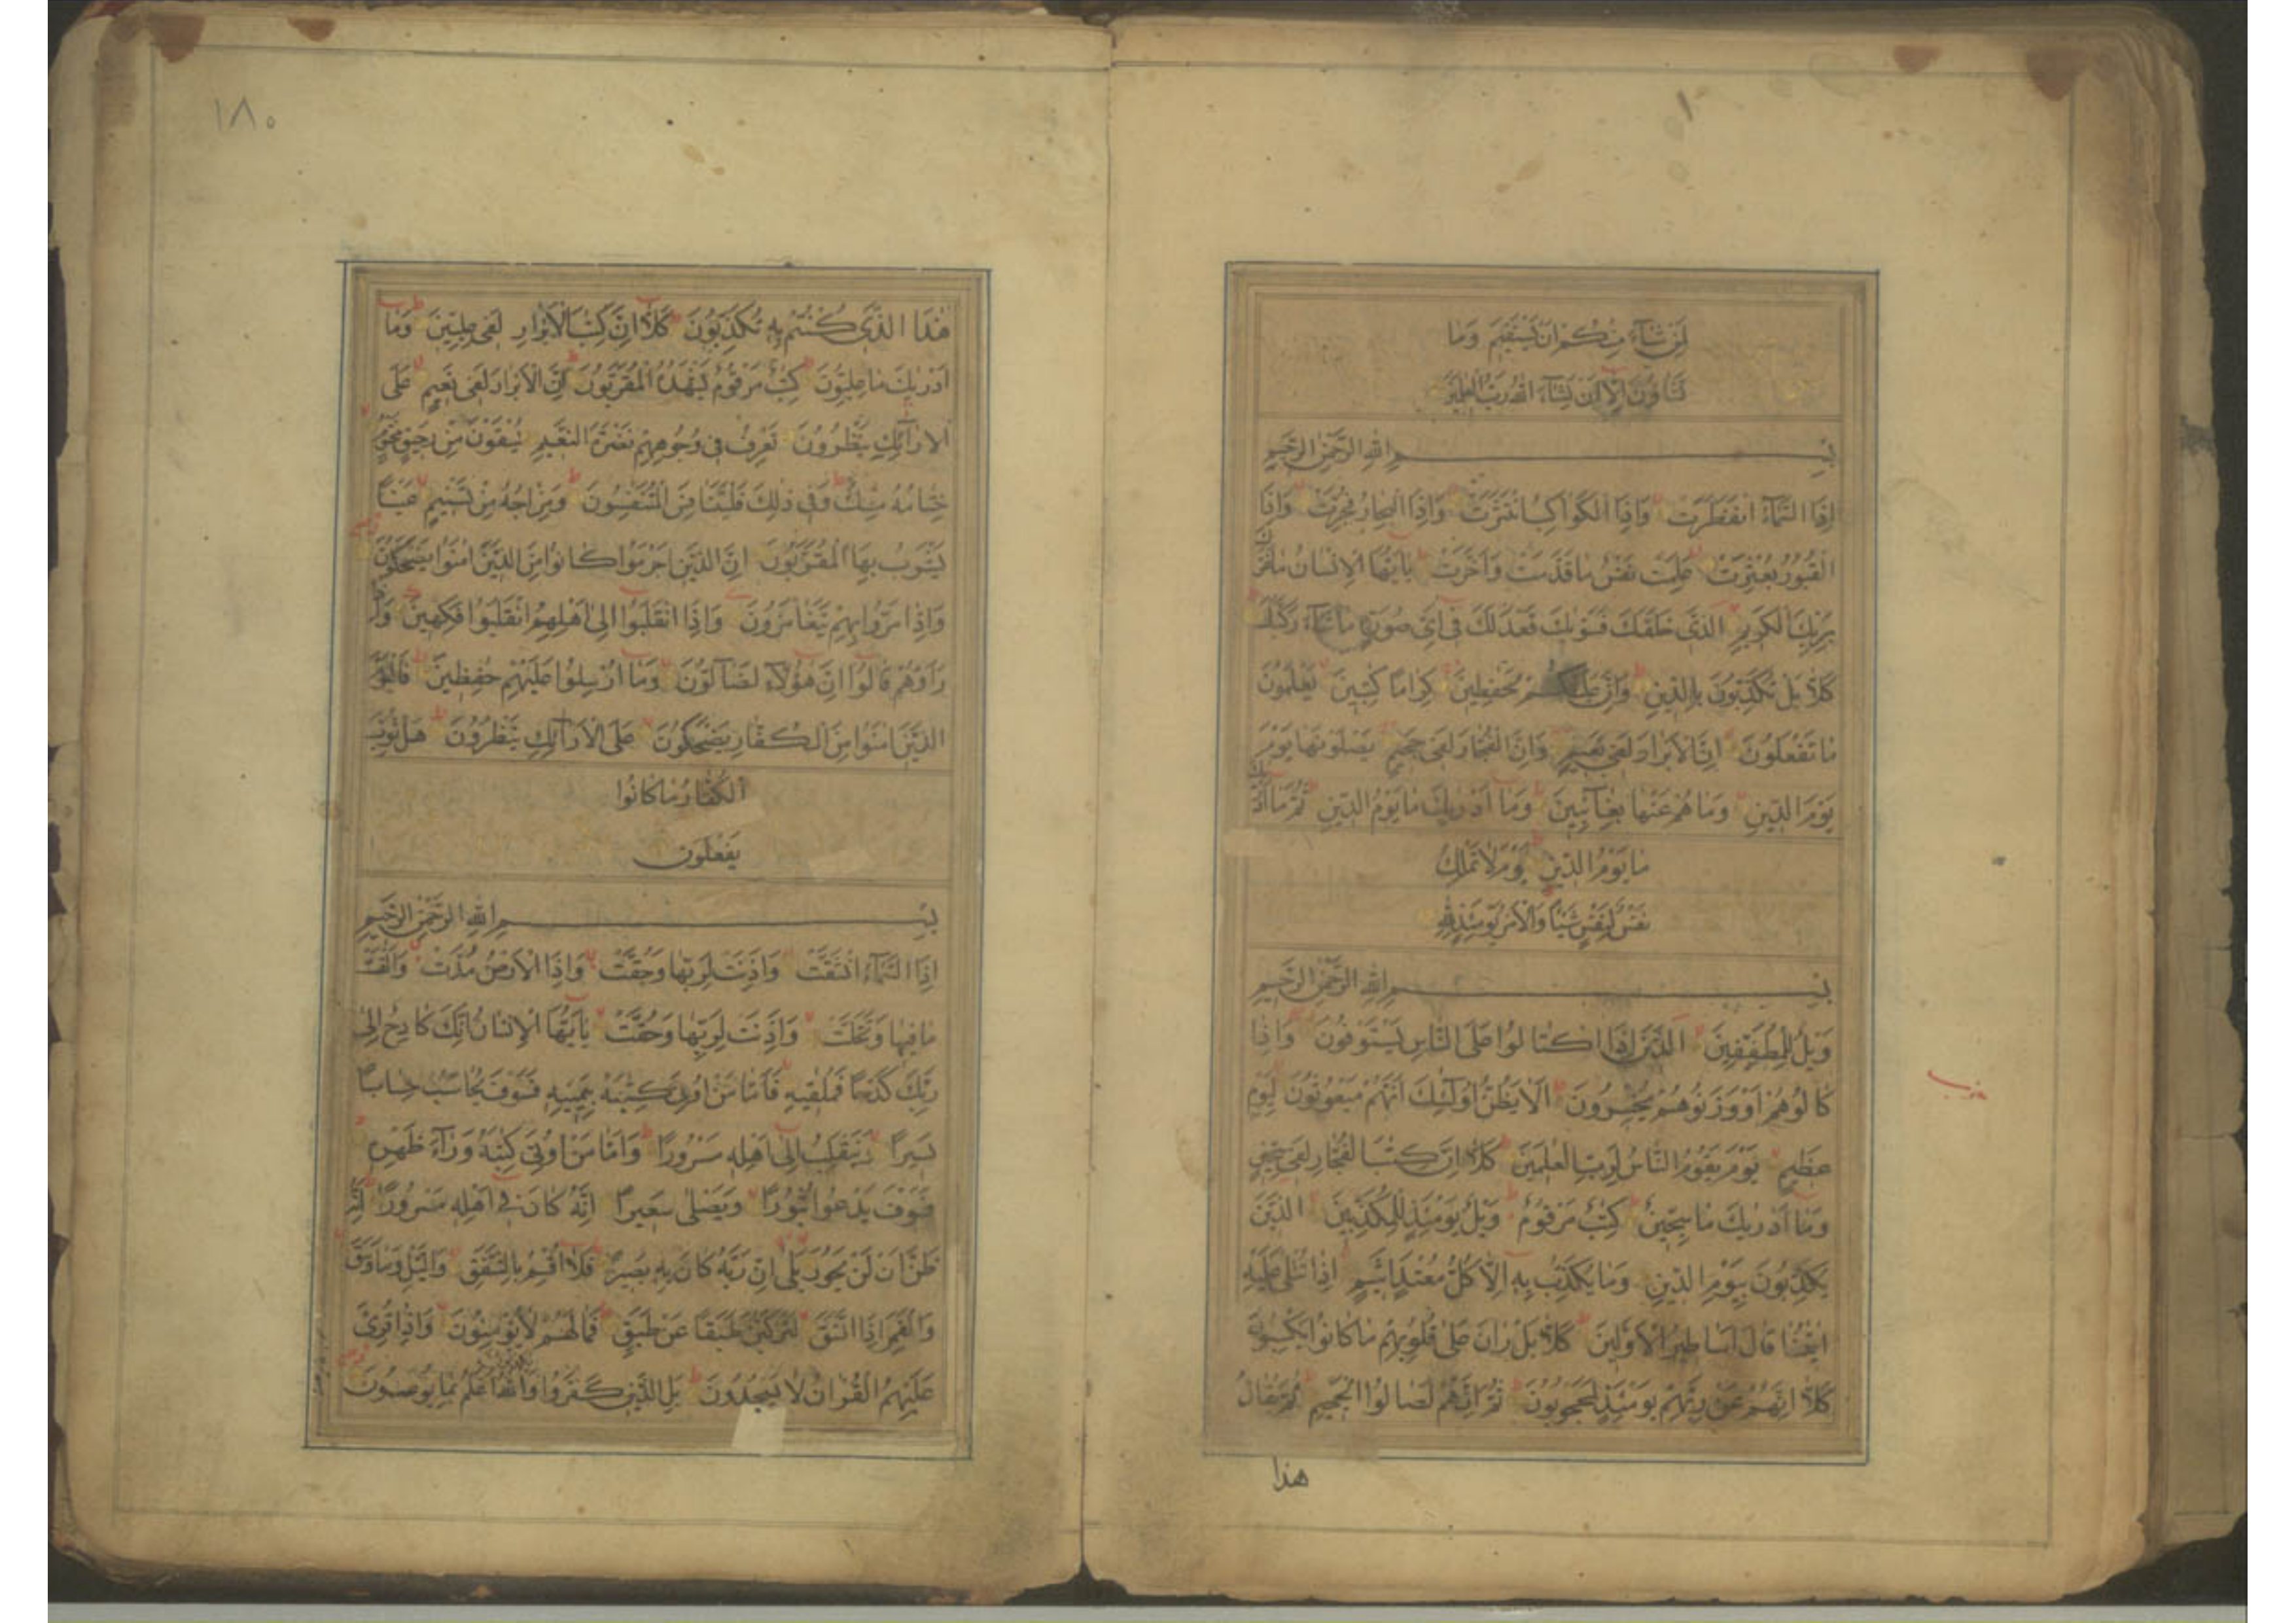 لمن شاء منكم ان يستقيم وما
تشاؤن الا ان يشاء الله رب العلمين
بسم الله الرحمن الرحيم
اذا السماء انفطرت واذا الكواكب انتثرت واذا البحار فجرت واذا
القبور بعثرت علمت نفس ما قدمت واخرت يا ايها الانسان ما غرك
بربك الكريم الذي خلقك فسويك فعدلك في اي صورة ما شاء ركبك
كلا بل تكذبون بالدين وان عليكم لحفظين كراما كتبين يعلمون
ما تفعلون ان الابرار لفي نعيم وان الفجار لفي جحيم يصلونها يوم
يوم الدين وما هم عنها بغائبين وما ادريك ما يوم الدين ثم ما ادريك
ما يوم الدين يوم لا تملك
نفس لنفس شيئا والامر يومئذ لله
بسم الله الرحمن الرحيم
ويل للمطففين الذين اذا اكتالوا على الناس يستوفون واذا
كالوهم او وزنوهم يخسرون الا يظن اولئك انهم مبعوثون ليوم
عظيم يوم يقوم الناس لرب العلمين كلا ان كتب الفجار لفي سجين
وما ادريك ما سجين كتب مرقوم ويل يومئذ للمكذبين الذين
يكذبون بيوم الدين وما يكذب به الا كل معتد اثيم اذا تتلى عليه
ايتنا قال اساطير الاولين كلا بل ران على قلوبهم ما كانوا يكسبون
كلا انهم عن ربهم يومئذ لمحجوبون ثم انهم لصالوا الجحيم ثم يقال
هذا
١٨٠
هذا الذي كنتم به تكذبون كلا ان كتب الابرار لفي عليين وما
ادريك ما عليون كتب مرقوم يشهده المقربون ان الابرار لفي نعيم على
الارائك ينظرون تعرف في وجوههم نضرة النعيم يسقون من رحيق مختوم
ختامه مسك وفي ذلك فليتنافس المتنفسون ومزاجه من تسنيم عينا
يشرب بها المقربون ان الذين اجرموا كانوا من الذين امنوا يضحكون
واذا مروا بهم يتغامزون واذا انقلبوا الى اهلهم انقلبوا فكهين واذا
راوهم قالوا ان هؤلاء لضالون وما ارسلوا عليهم حفظين فاليوم
الذين امنوا من الكفار يضحكون على الارائك ينظرون هل ثوب
الكفار ما كانوا
يفعلون
بسم الله الرحمن الرحيم
اذا السماء انشقت واذنت لربها وحقت واذا الارض مدت والقت
ما فيها وتخلت واذنت لربها وحقت يا ايها الانسان انك كادح الى
ربك كدحا فملقيه فاما من اوتي كتبه بيمينه فسوف يحاسب حسابا
يسيرا وينقلب الى اهله مسرورا واما من اوتي كتبه وراء ظهره
فسوف يدعوا ثبورا ويصلى سعيرا انه كان في اهله مسرورا انه
ظن ان لن يحور بلى ان ربه كان به بصيرا فلا اقسم بالشفق واليل وما وسق
والقمر اذا اتسق لتركبن طبقا عن طبق فما لهم لا يؤمنون واذا قرئ
عليهم القران لا يسجدون بل الذين كفروا والله اعلم بما يوعون